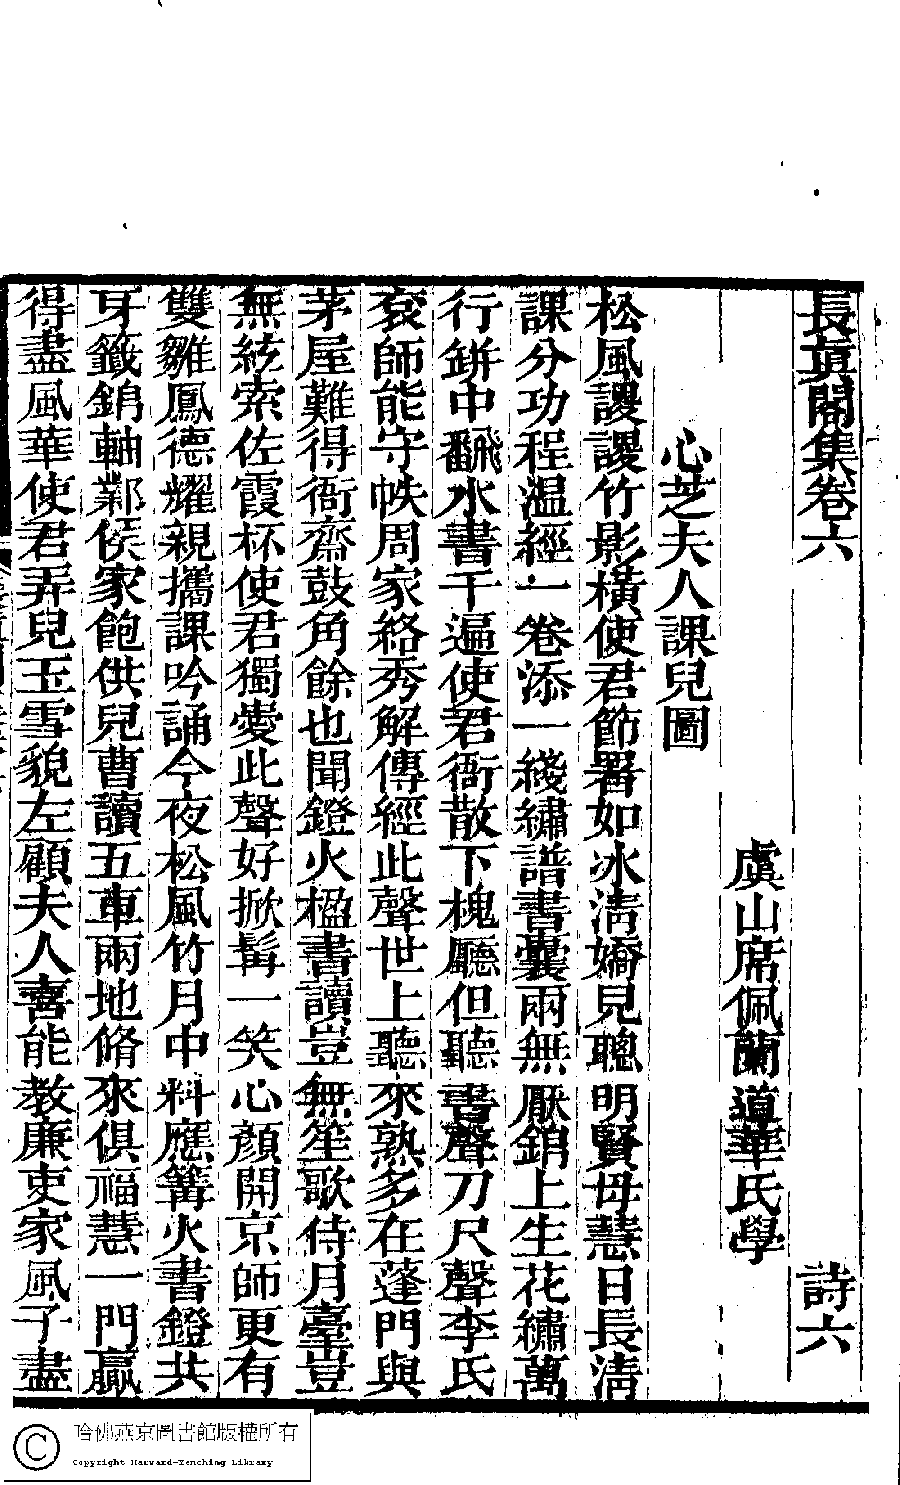 長真閣集卷六　詩六
虞山席佩蘭道華氏學
心芝夫人課兒圖
松風謖謖竹影橫使君節署如冰清嬌兒聰明賢母慧日長清
課分功程溫經一卷添一綫繡譜書囊兩無厭銷上生花繡萬
行鉼中翻水書千遍使君衙散下槐廳但聽書聲刀尺聲李氏
袞師能守帙周家絡秀解傳經此聲世上聽來熟多在蓬門與
茅屋難得衙齋鼓角餘也聞鐙火楹書讀豈無笙歌侍月臺豈
無絃索佐霞杯使君獨愛此聲好掀髯一笑心顏開京師更有
雙雛鳳德耀親攜課吟誦今夜松風竹月中料應篝火書鐙共
牙籤錦軸鄴侯家飽供兒曹讀五車兩地脩來俱福慧一門贏
得盡風華使君弄兒玉雪貌左顧夫人喜能教廉吏家風子盡
哈佛燕京圖書館版權所有
Copyright Harvard-Yenching Library